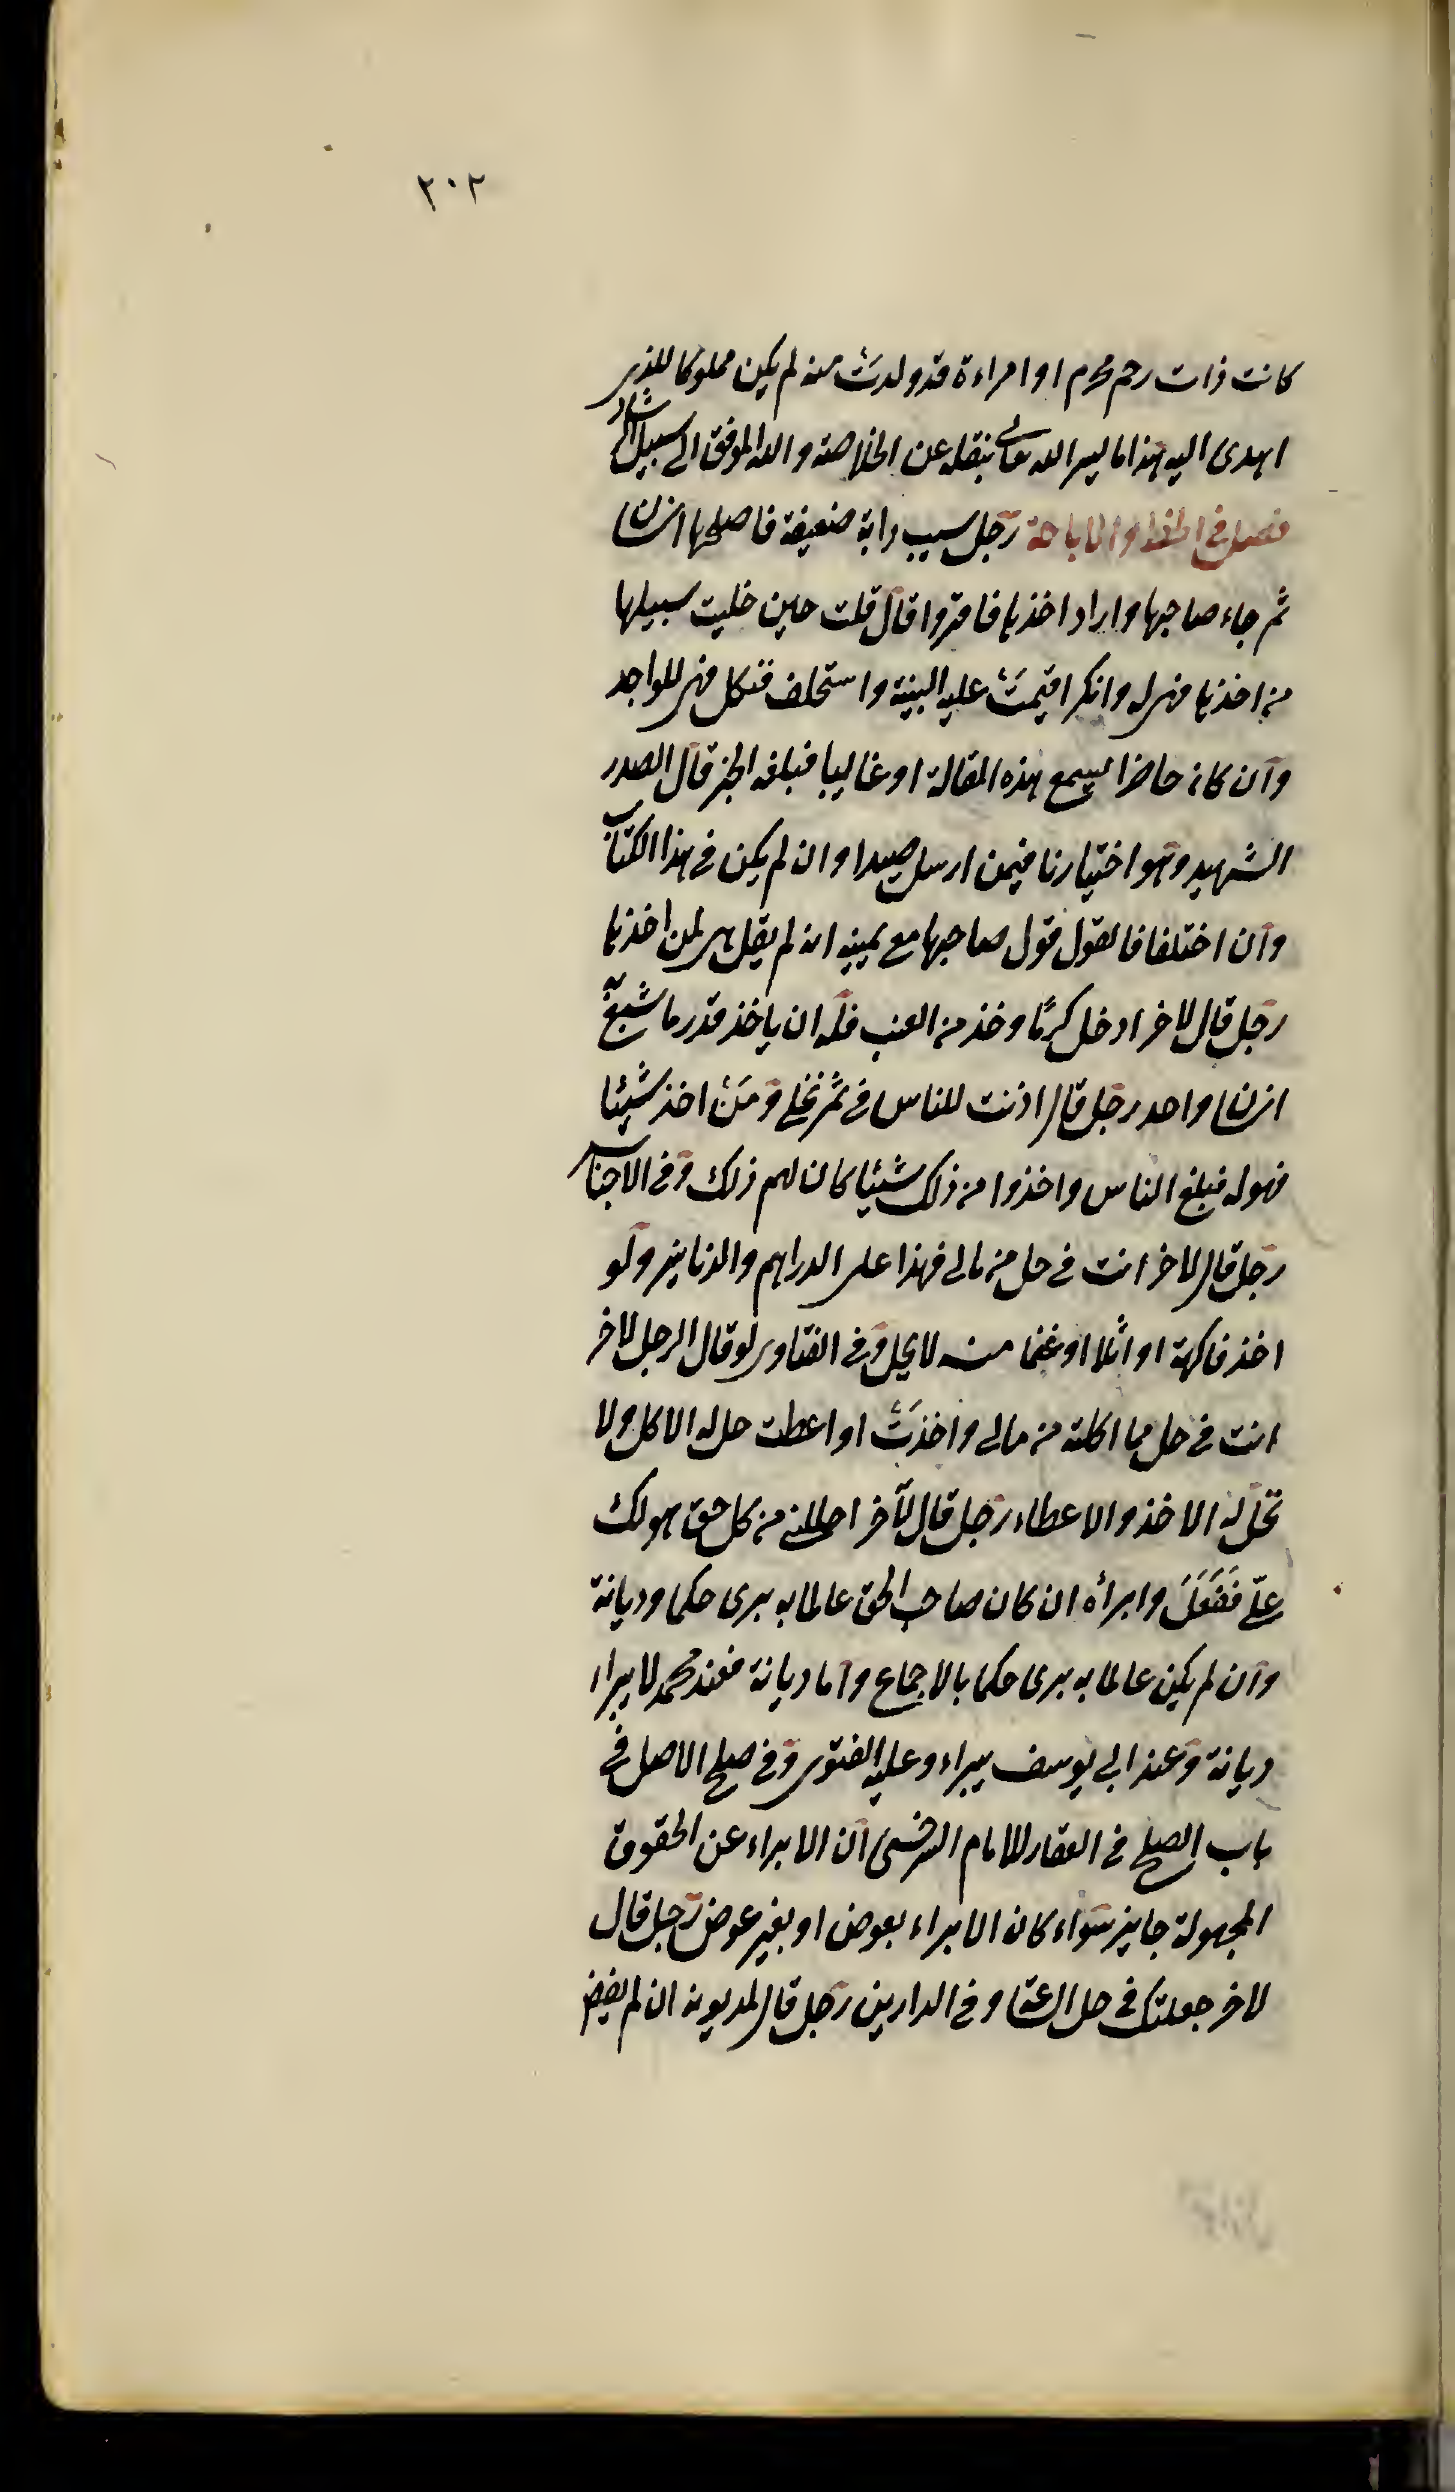 ٢٠٢
كانت ذات رحم محرم او امراءة قد ولدت منه لم يكن مملوكا للذى
اهدى اليه هذا ما يسر الله تعالى بنقله عن الخلاصة والله الموفق الى سبيل الرشاد
فصل فى الحظر والاباحة رجل سيب دابة ضعيفة فاصلحها انسان
ثم جاء صاحبها واراد اخذها فاقر وا قال قلت حين خليت سبيلها
من اخذها فهى له وانكر اقيمت عليه البينة واستحلف فنكل فهى للواجد
وان كان حاضرا يسمع هذه المقالة او غايبا فبلغه الخبر قال الصدر
الشهيد وهو اختيارنا فيمن ارسل صيدا وان لم يكن فى هذا الكتاب
وان اختلفا فالقول قول صاحبها مع يمينه انه لم يقل هى لمن اخذها
رجل قال لاخر ادخل كرمًا وخذ من العنب فله ان ياخذ قدر ما شبع به
انسان واحد رجل قال اذنت للناس فى ثمر نخلى ومن اخذ شيئا
فهو له فبلغ الناس واخذوا من ذلك شيئا كان لهم ذلك وفى الاجناس
رجل قال لاخر انت فى حل من مالى فهذا على الدراهم والدنانير ولو
اخذ فاكهة او ابلا او غنما منه لا يحل وفى الفتاوى لو قال الرجل لاخر
انت فى حل مما اكلته من مالى واخذت او اعطت حل له الاكل ولا
تحل له الاخذ والاعطاء رجل قال لآخر احللنى من كل حق هو لك
علىّ فَفَعَلَ وابرأه ان كان صاحب الحق عالما به برى حكما وديانة
وان لم يكن عالما به برى حكما بالاجماع واما ديانة فعند محمد لا يبراء
ديانة وعند ابى يوسف يبراء وعليه الفتوى وفى صلح الاصل فى
باب الصلح فى العقار للامام السرخسى ان الابراء عن الحقوق
المجهولة جايز سواء كان الابراء بعوض او بغير عوض رجل قال
لاخر جعلتك فى حل الساعة او فى الدارين رجل قال لمديونه ان لم يقض